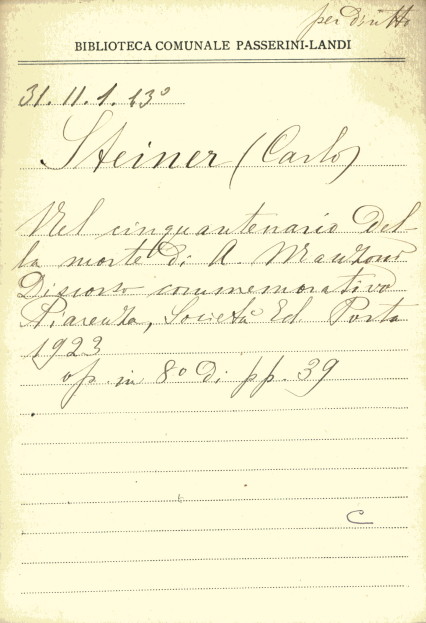 per diritto
BIBLIOTECA COMUNALE PASSERINI-LANDI
31.11.1.13º
Steiner (Carlo)
Nel cinquantenario del
la morte di A. Manzoni
Discorso commemorativo
Piacenza, Società Ed. Porta
1923
op. in 8º di pp. 39
C